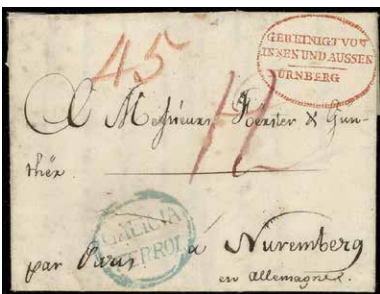 45
GEREINIGT VON
INNEN UND AUSSEN
NÜRNBERG
12
A Messieurs Förster & Gun-
ther
GALICIA
FERROL
par Paris à Nuremberg
en allemagne.